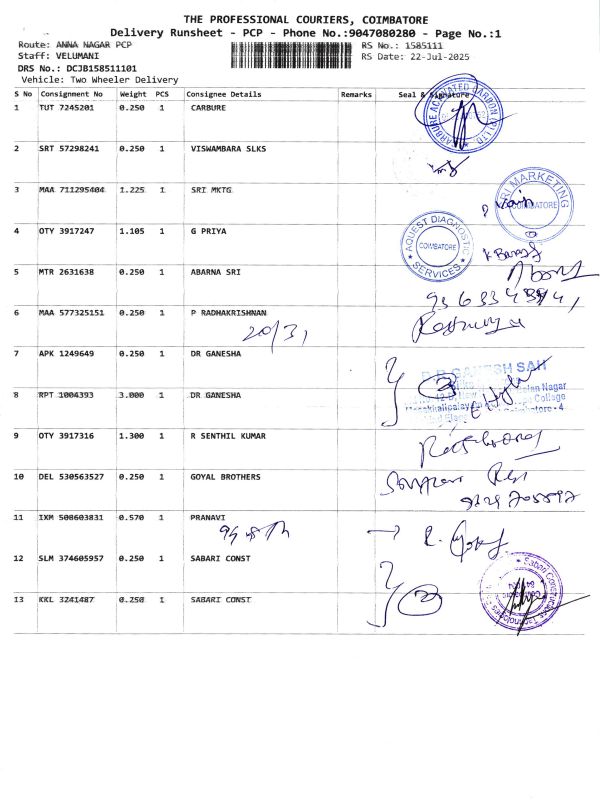 THE PROFESSIONAL COURIERS, COIMBATORE
Delivery Runsheet - PCP - Phone No.:9047080280 - Page No.:1
Route: ANNA NAGAR PCP RS No.: 1585111
Staff: VELUMANI RS Date: 22-Jul-2025
DRS No.: DCJB158511101
Vehicle: Two Wheeler Delivery
S No Consignment No Weight PCS Consignee Details Remarks Seal & Signature
1 TUT 7245201 0.250 1 CARBURE
CARBURE ACTIVATED CARBON (P) LTD
2 SRT 57298241 0.250 1 VISWAMBARA SLKS
3 MAA 711295404 1.225 1 SRI MKTG
SRI MARKETING COIMBATORE
4 OTY 3917247 1.105 1 G PRIYA
AQUEST DIAGNOSTIC SERVICES COIMBATORE
5 MTR 2631638 0.250 1 ABARNA SRI
6 MAA 577325151 0.250 1 P RADHAKRISHNAN
20/31
7 APK 1249649 0.250 1 DR GANESHA
8 RPT 1004393 3.000 1 DR GANESHA
9 OTY 3917316 1.300 1 R SENTHIL KUMAR
10 DEL 530563527 0.250 1 GOYAL BROTHERS
11 IXM 508603831 0.570 1 PRANAVI
12 SLM 374605957 0.250 1 SABARI CONST
2
13 KKL 3241487 0.250 1 SABARI CONST